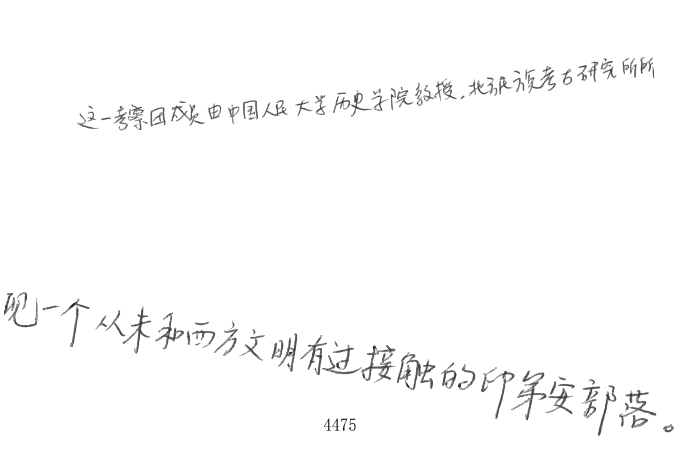 这一考察团成员由中国人民大学历史学院教授,北方民族考古研究所所
现一个从未和西方文明有过接触的印第安部落。
4475